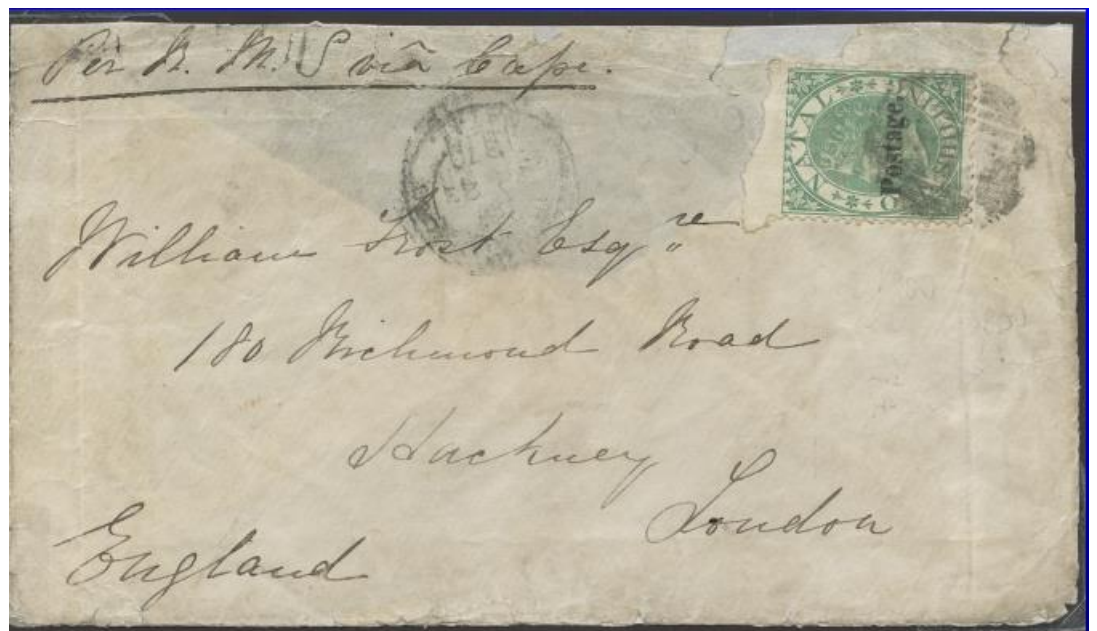 Per R. M. S viâ Cape.
NATAL
ONE SHILLING
Postage.
William Frost Esqre
180 Richmond Road
Hackney
London
England